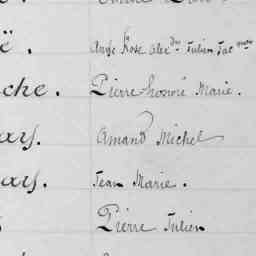 ë. Ange Rose Alexdre Julien Jacques
che. Pierre-honoré Marie.
ay. Amand Michel
ay. Jean Marie.
Pierre Julien